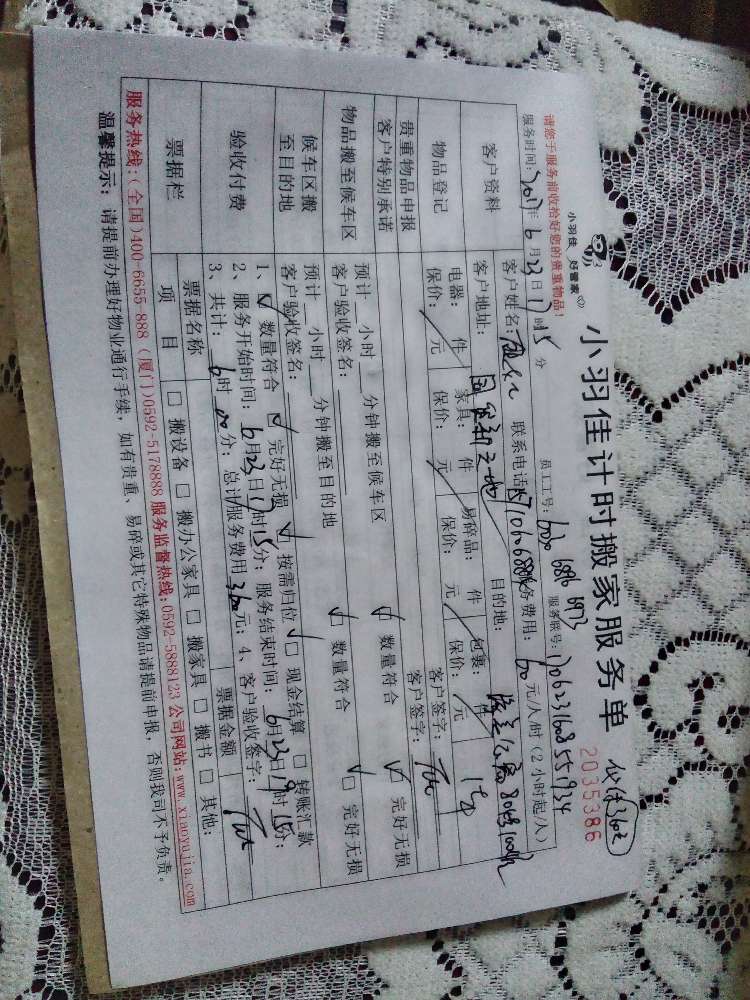 小羽佳 好管家
小羽佳计时搬家服务单
2035386
请您于服务前收拾好您的贵重物品!
员工工号: 6030 6886 6973 服务账号:
服务时间: 2017年6月23日17时15分
客户资料
客户姓名: 联系电话: 服务费用: 60元/人/时(2小时起/人)
客户地址: 目的地:
物品登记
电器: 件 家具: 件 易碎品: 件 包裹: 件
保价: 元 保价: 元 保价: 元 保价: 元
贵重物品申报 客户签字:
客户特别承诺 客户签字:
物品搬至候车区
预计 小时 分钟搬至候车区 ☑ 数量符合 ☑ 完好无损
客户验收签名:
候车区搬至目的地
预计 小时 分钟搬至目的地 ☑ 数量符合 ☑ 完好无损
客户验收签名:
验收付费
1、☑ 数量符合 ☑ 完好无损 ☑ 按需归位 ☑ 现金结算 □ 转账汇款
2、服务开始时间: 6月23日17时15分; 服务结束时间: 6月23日19时15分;
3、共计: 6时00分; 总计服务费用360元; 4、客户验收签字:
票据栏
票据名称 票据金额
项目 □ 搬设备 □ 搬办公家具 □ 搬家具 □ 搬书 □ 其他:
服务热线:(全国)400-6655-888 (厦门)0592-5178888 服务监督热线:0592-5888123 公司网站:www.xiaoyujia.com
温馨提示: 请提前办理好物业通行手续, 如有贵重、易碎或其它特殊物品请提前申报, 否则我司不予负责。